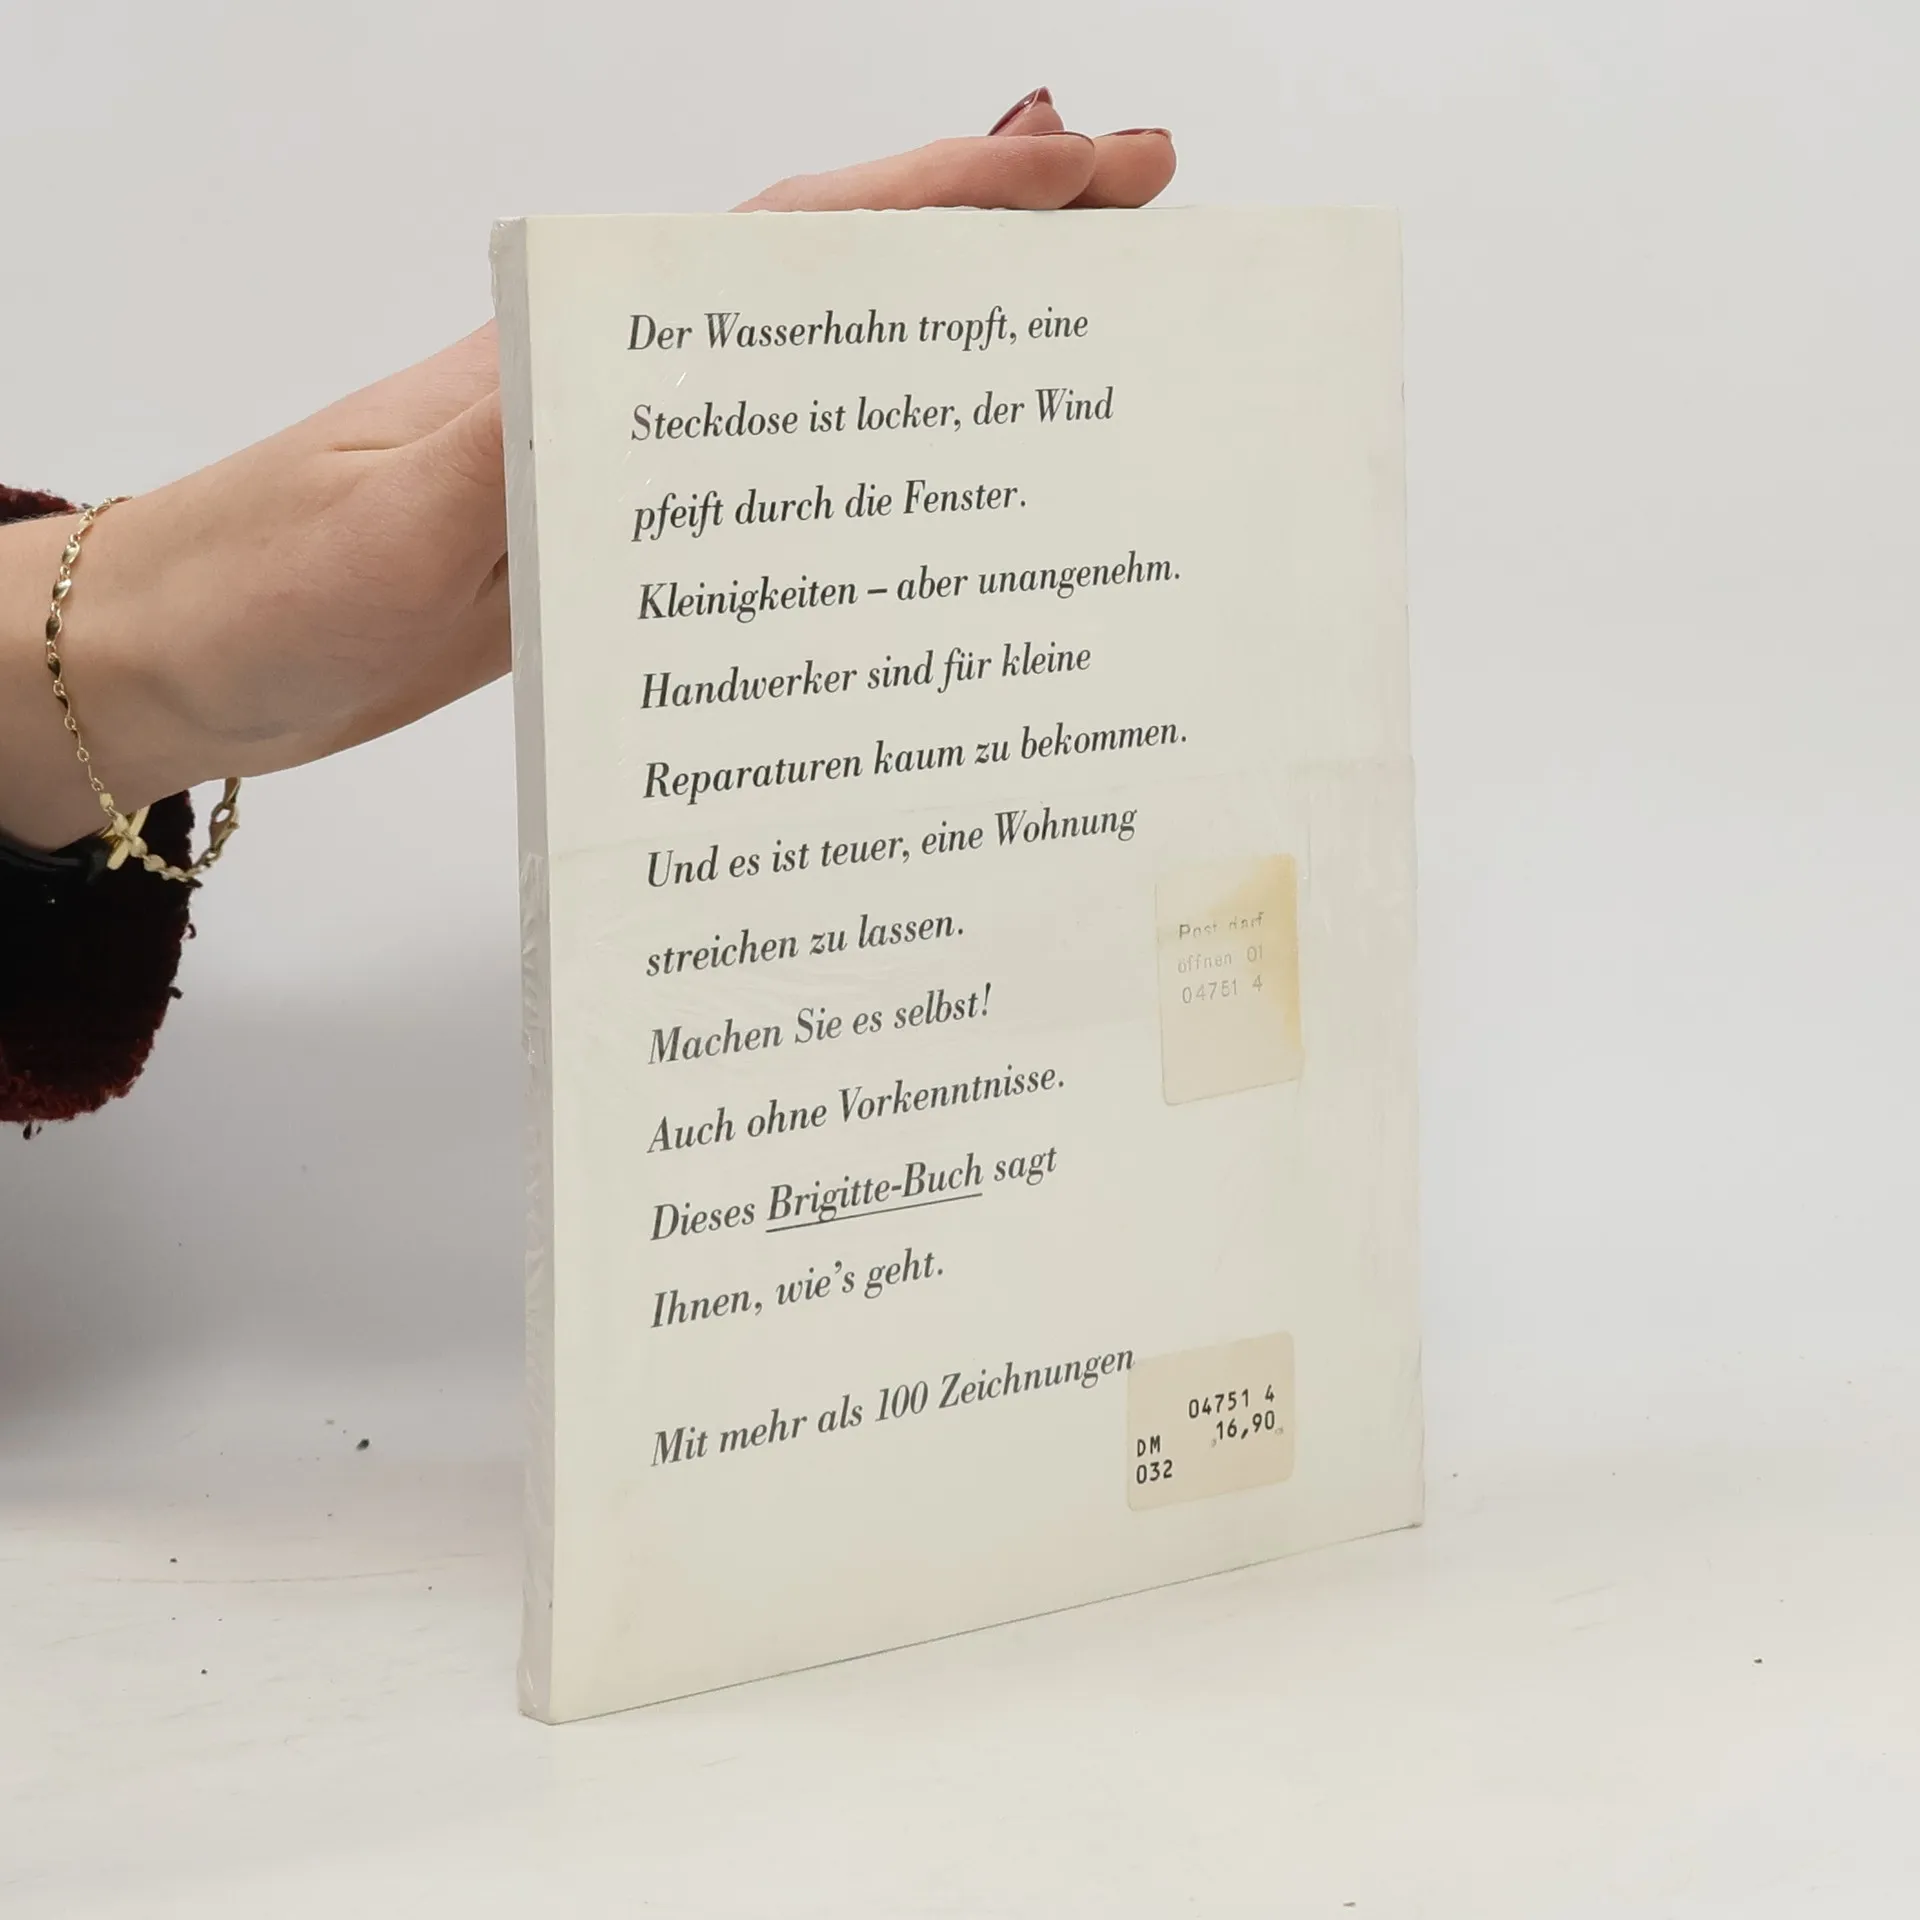 Der Wasserhahn tropft, eine
Steckdose ist locker, der Wind
pfeift durch die Fenster.
Kleinigkeiten – aber unangenehm.
Handwerker sind für kleine
Reparaturen kaum zu bekommen.
Und es ist teuer, eine Wohnung
streichen zu lassen.
Machen Sie es selbst!
Auch ohne Vorkenntnisse.
Dieses Brigitte-Buch sagt
Ihnen, wie’s geht.
Mit mehr als 100 Zeichnungen
Post darf
öffnen 01
04751 4
04751 4
DM 16,90
032